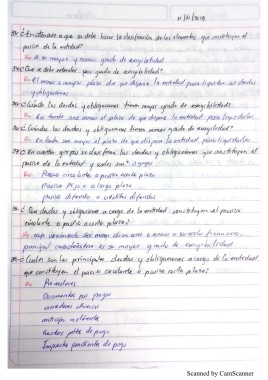 11/11/2018
23-¿En atención a que se debe hacer la clasificación de los elementos que constituyen el
pasivo de la entidad?
R= A su mayor y menor grado de exigibilidad
24-¿Que se debe entender por grado de exigibilidad?
R= El menor o mayor plazo de que dispone la entidad para liquidar sus deudas
y obligaciones
25-¿Cuándo las deudas y obligaciones tienen mayor grado de exigibilidad?
R= En tanto sea menor el plazo de que dispone la entidad para liquidarlas
26-¿Cuándo las deudas y obligaciones tienen menor grado de exigibilidad?
R= En tanto sea mayor el plazo de que dispone la entidad para liquidarlas
27-¿En cuantos grupos se clasifican las deudas y obligaciones que constituyen el
pasivo de la entidad y cuales son?
R= Pasivo circulante o pasivo a corto plazo
Pasivo fijo o a largo plazo
pasivo diferido o créditos diferidos
28-¿Que deudas y obligaciones a cargo de la entidad constituyen el pasivo
circulante o pasivo a corto plazo?
R= cuyo vencimiento sea menor de un año o menor a su ciclo financiero,
principal característica es su mayor grado de exigibilidad
29-¿Cuáles son las principales deudas y obligaciones a cargo de la entidad
que constituyen el pasivo circulante o pasivo a corto plazo?
R= Proveedores
Documentos por pagar
acreedores diversos
anticipo a clientes
Gastos pdte de pago
Impuestos pendientes de pago
Scanned by CamScanner